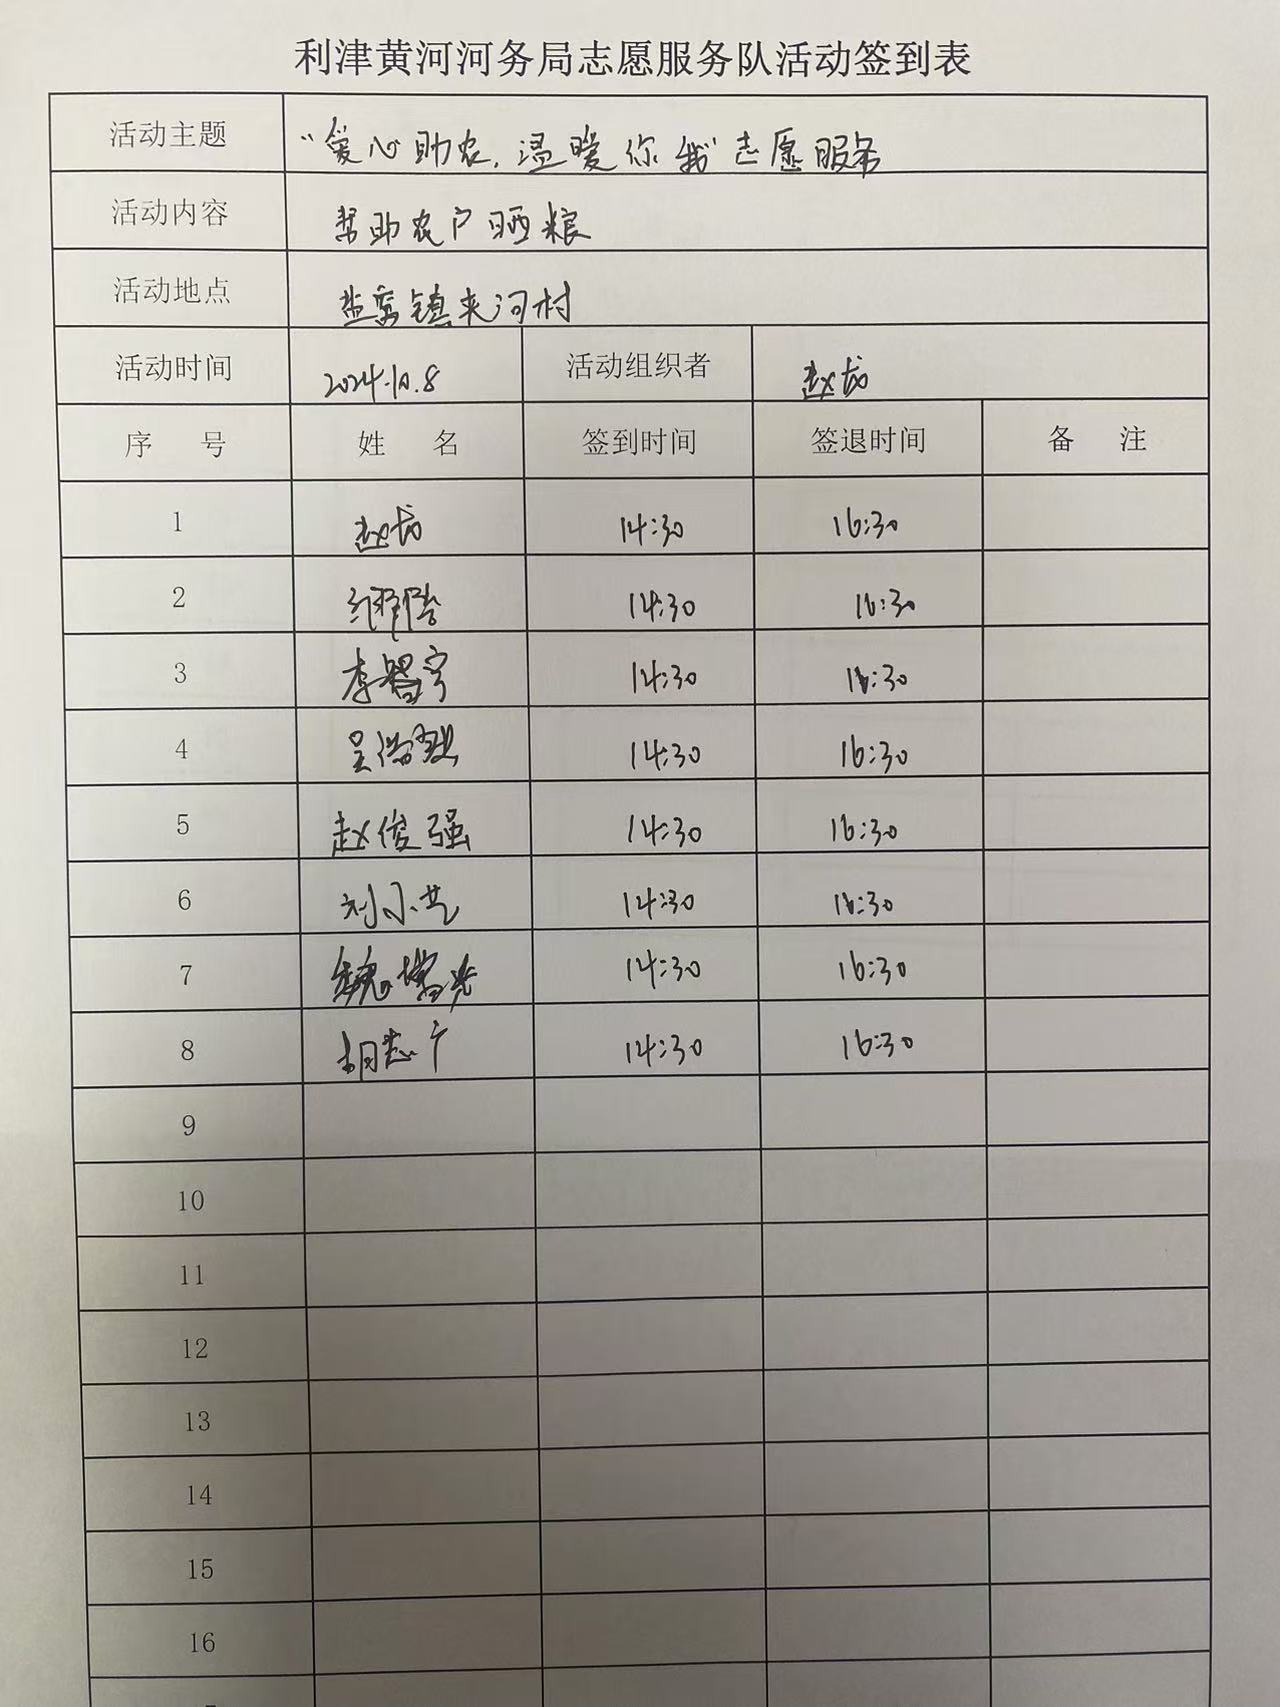 利津黄河河务局志愿服务队活动签到表
活动主题 “爱心助农,温暖你我”志愿服务
活动内容 帮助农户晒粮
活动地点 盐窝镇夹河村
活动时间 2024.10.8 活动组织者 赵龙
序号 姓名 签到时间 签退时间 备注
1 赵龙 14:30 16:30
2 14:30 16:30
3 李智宇 14:30 16:30
4 14:30 16:30
5 赵俊强 14:30 16:30
6 刘小艺 14:30 16:30
7 14:30 16:30
8 胡志宁 14:30 16:30
9
10
11
12
13
14
15
16